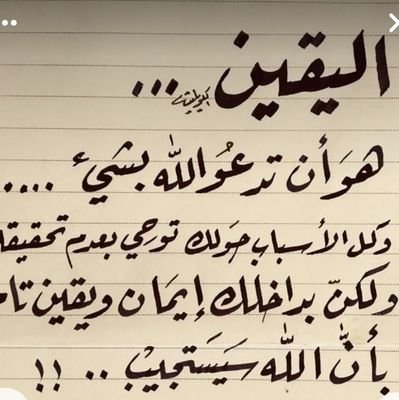 اليقين ...
هوَ أن تدعُو الله بشيءٍ ....
وكل الأسباب حَولك توحي بعدم تحقيقه
ولكنّ بداخلك إيمَان ويقين تام
بأنَّ الله سَيَستجيبْ .. !!